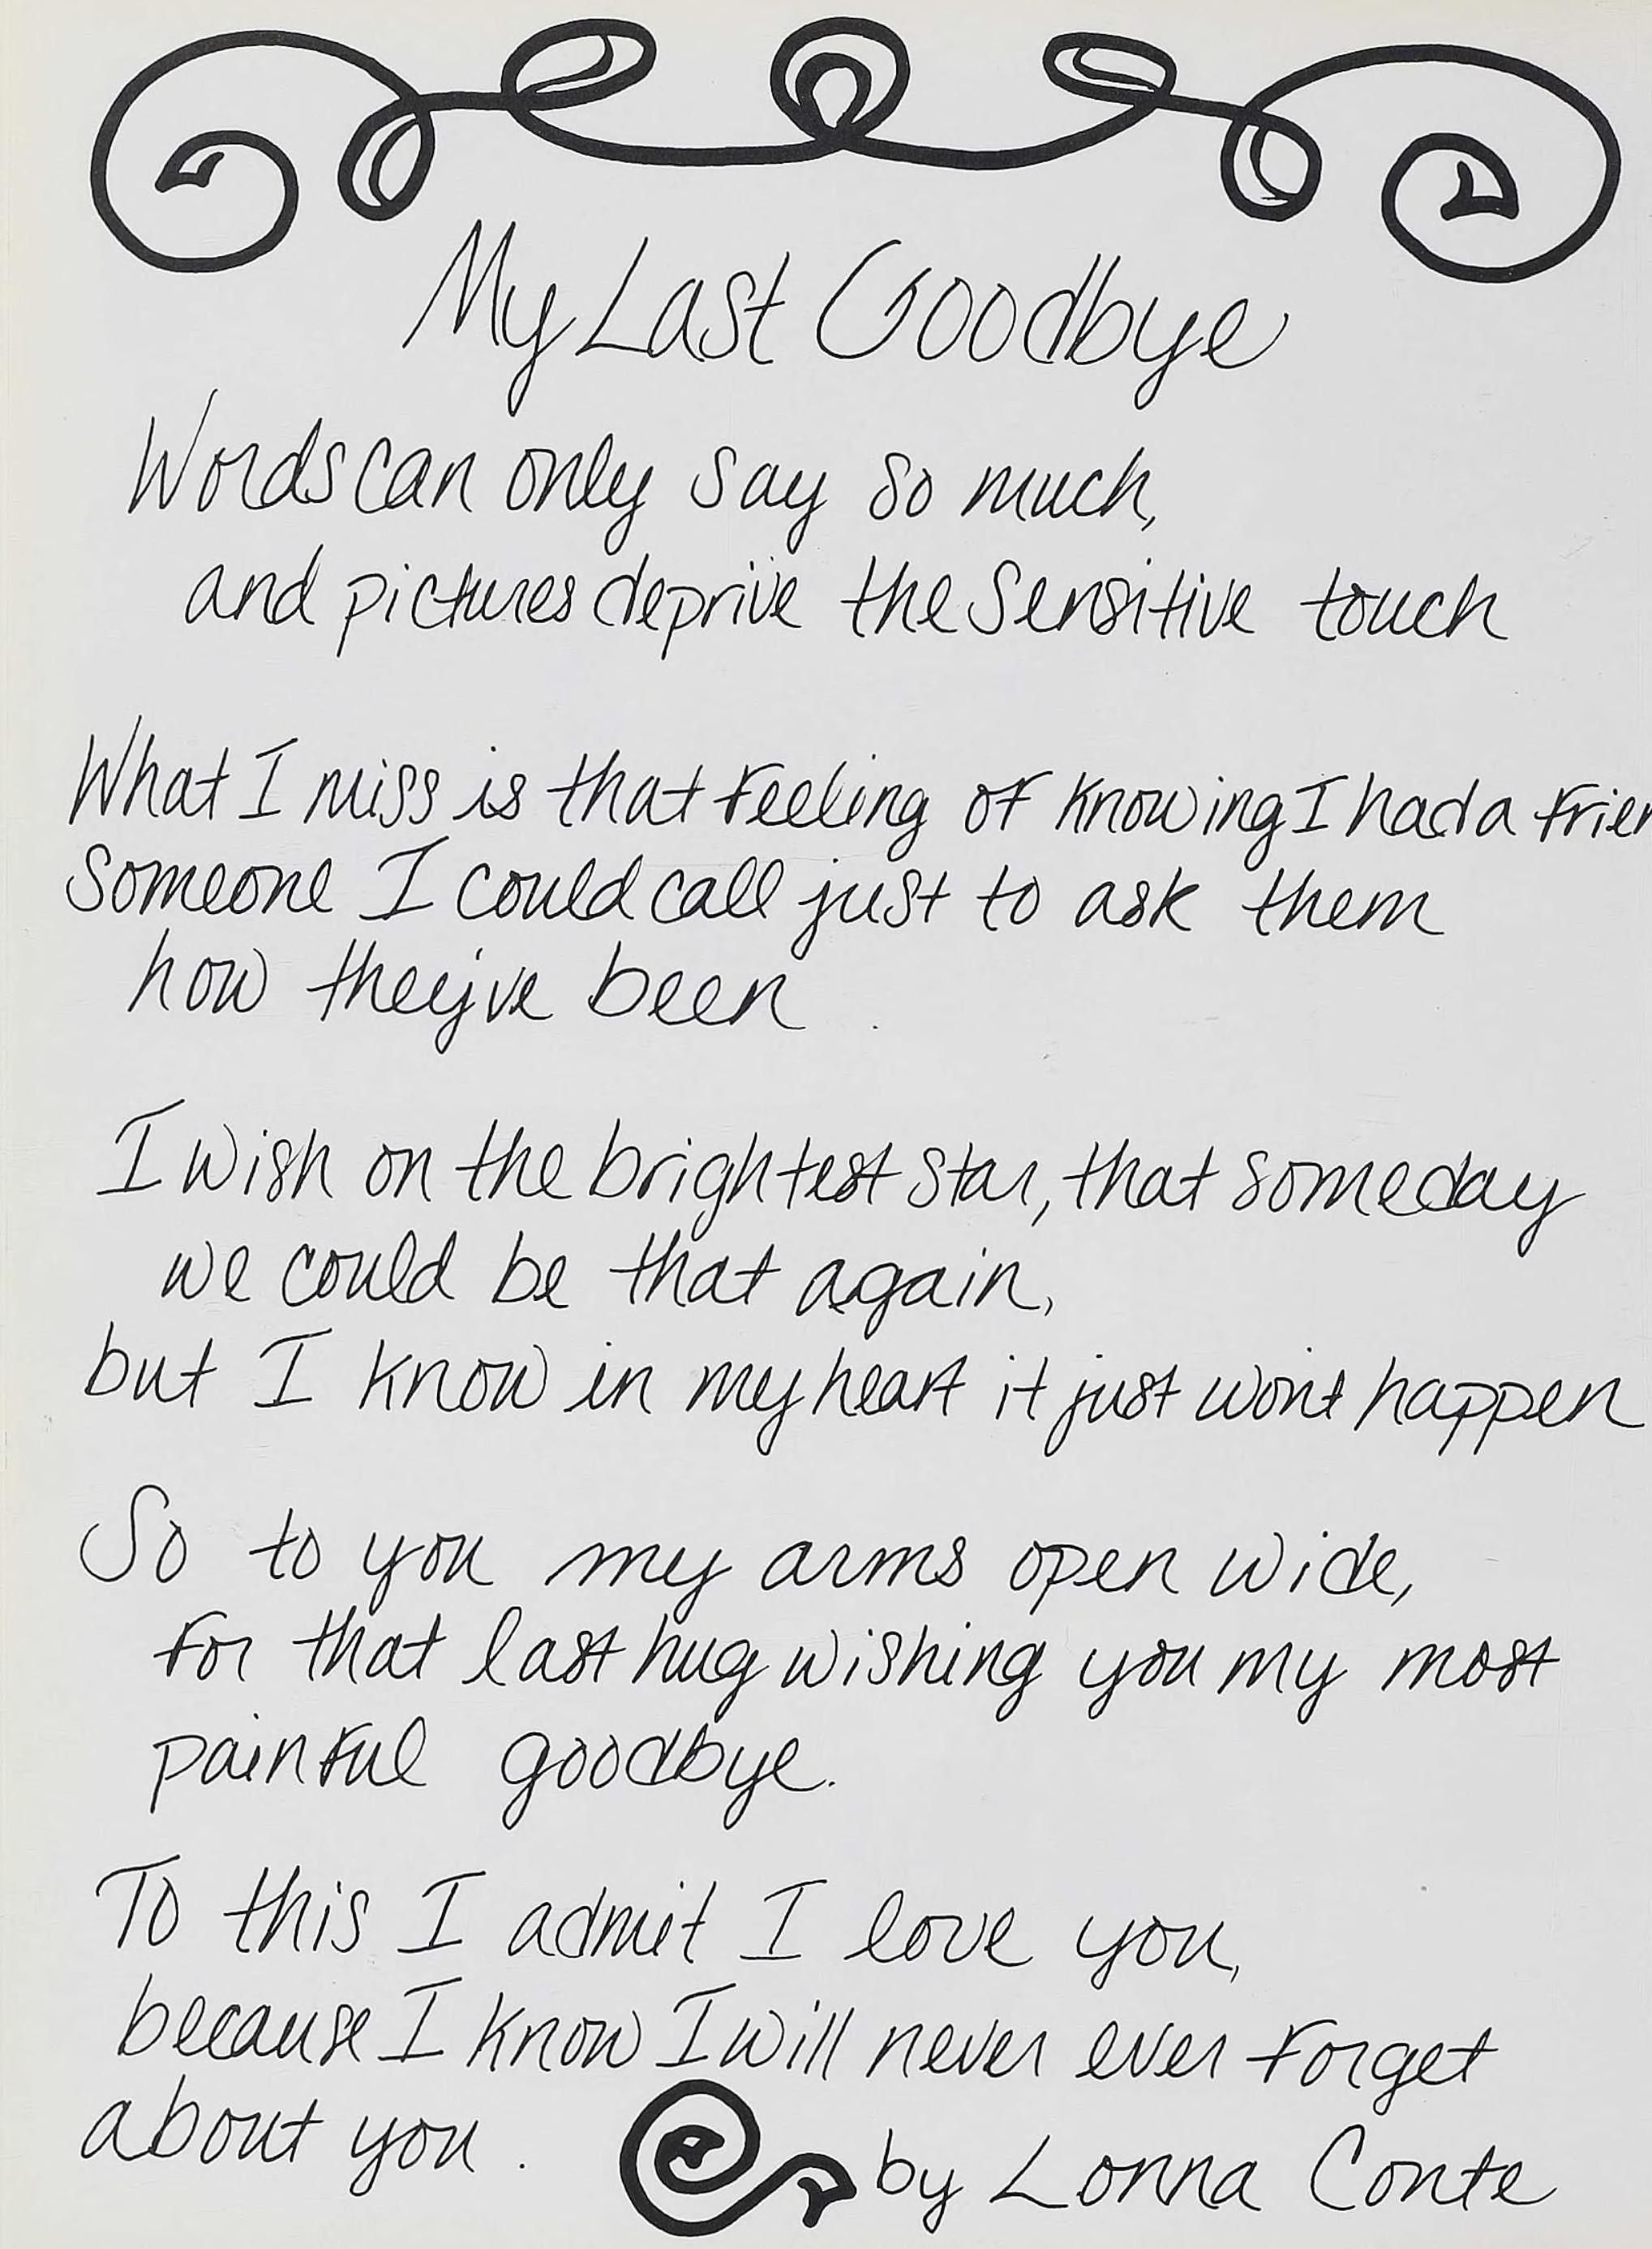 My Last Goodbye
Words can only say so much,
and pictures deprive the sensitive touch
What I miss is that feeling of knowing I had a frien
Someone I could call just to ask them
how they've been
I wish on the brightest star, that someday
we could be that again,
but I know in my heart it just wont happen
So to you my arms open wide,
for that last hug wishing you my most
painful goodbye.
To this I admit I love you,
because I know I will never ever forget
about you.
by Lonna Conte